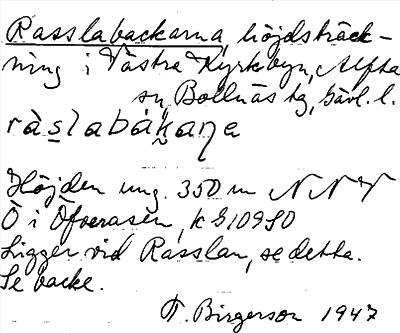 Rasslabackarna, höjdsträck-
ning i Västra Kyrkbyn, Alfta
sn, Bollnäs tg, Gävl. l.
ràs̲labáḵaŋa
Höjden ung. 350 m NNV
O i Öfverasen, k G109SO
Ligger vid Rasslan, se detta.
Se backe.
T. Birgerson 1947